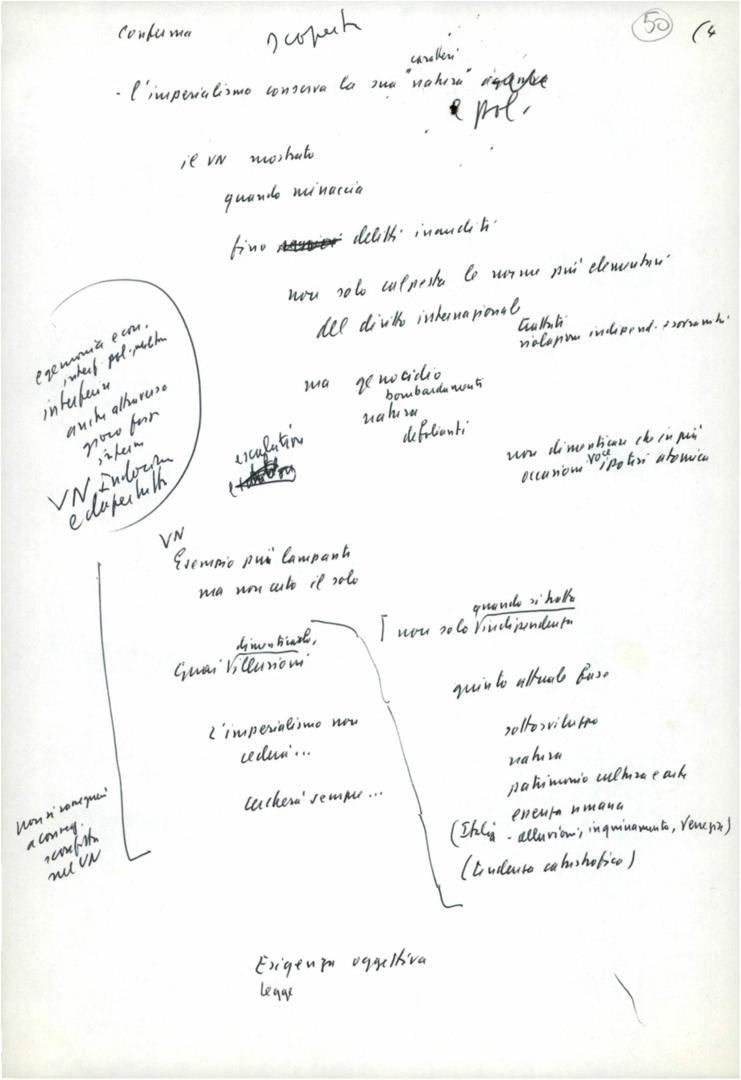 Conferma scoperta
50 (4
caratteri
- l'imperialismo conserva la sua "natura"
e pol.
il VN mostrato
quando minaccia
fino delitti inauditi
non solo calpesta le norme più elementari
del diritto internazionale
trattati
violazioni independ. e sovranità
ma genocidio
bombardamenti
natura
defolianti
escalation
non dimenticare che in più
occasioni voce ipotesi atomica
egemonia econ.
interf. pol.
interferire
anche attraverso
gioco forze
interne
VN Indocina
e dapertutto
VN
Esempio più lampante
ma non certo il solo
dimenticarlo,
Guai illusioni
L'imperialismo non
cederà...
cercherà sempre...
non si rassegnerà
a conseg.
sconfitta
nel VN
quando si tratta
non solo indipendenza
quinto attuale base
sottosviluppo
natura
patrimonio cultura e arte
essenza umana
(Italia - alluvioni, inquinamento, Venezia)
(tendenza catastrofica)
Esigenza oggettiva
legge